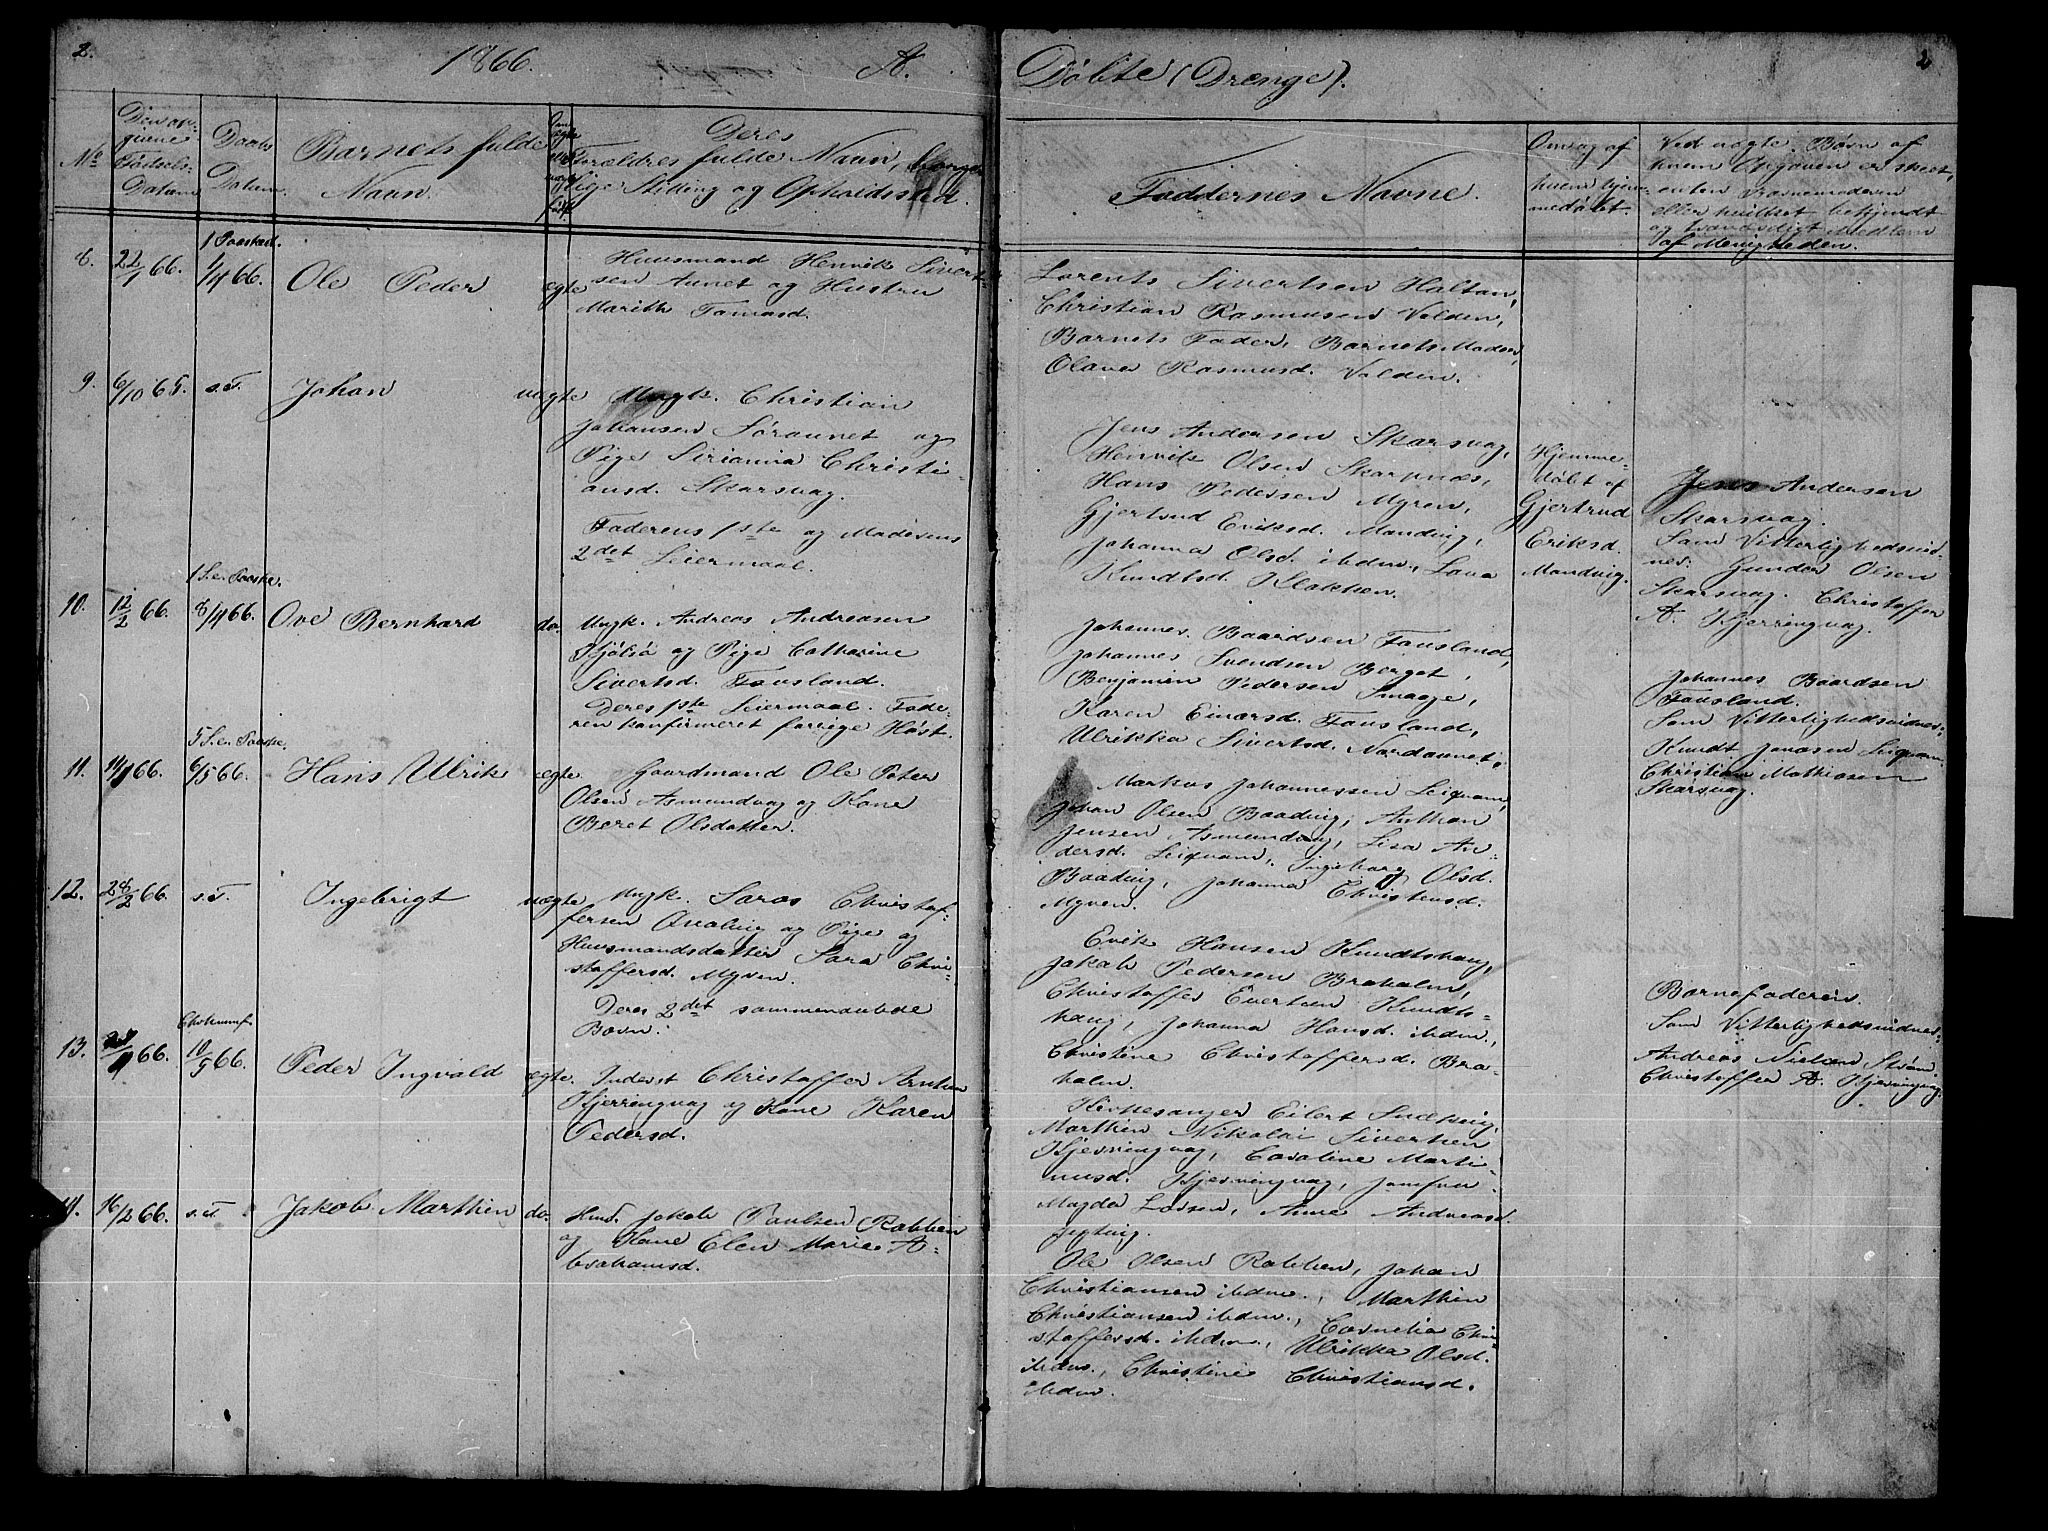 2.
1866.
A.
Døbte (Drenge).
2
No
Den op-
givne
Fødsels-
Datum
Daabs
Datum.
Barnets fulde
Navn.
Deres
Forældres fulde Navn, Borger-
lige Stilling og Opholdssted.
Faddernes Navne.
Om og af
hvem hjem-
medøbt.
Ved uægte Børn af
hvem Opgaven er skeet,
enten Prævnemoderen
eller hvilket bekjendt
og troværdigt Medlem
af Menigheden.
8.
22/1 66.
1 Paasked.
1/4 66.
Ole Peder
ægte
Huusmand Henrik Sivert-
sen Aunet og Hustru
Marith Tomasd.
Lorents Sivertsen Haltan,
Christian Rasmusen Valden,
Barnets Fader, Barnets Moder,
Olava Rasmusd. Valden.
9.
6/10 65.
s.d.
Johan
uægte
Ungk. Christian
Johansen Søraunet og
Pige Sirianna Christi-
ansd. Skarsvag.
Faderens 1ste og Moderens
2det Leiermaal.
Jens Andersen Skarsvag,
Henrik Olsen Skarpnæs,
Hans Pedersen Myren,
Gjertrud Eriksd. Mandvig,
Johanna Olsd. ibdm., Lava
Knudtsd. Klakken.
Hjemme-
døbt af
Gjertrud
Eriksd.
Mandvig.
Jens Andersen
Skarsvag.
Som Vitterlighedsvid-
nes: Gunder Olsen
Skarsvag. Christoffer
A. Kjerringvag.
10.
12/2 66.
1 S. e. Paaske.
8/4 66.
Ove Bernhard
do.
Ungk. Andreas Andreasen
Kjølsø og Pige Catharine
Sivertsd. Fousland.
Deres 1ste Leiermaal. Fade-
ren konfirmeret forrige Høst.
Johannes Baardsen Fausland,
Johannes Svendsen Berget,
Benjamin Pedersen Smaage,
Karen Einarsd. Fausland,
Ulrikka Sivertsd. Nordaunet.
Johannes Baardsen
Fausland.
Som Vitterlighedsvidnes:
Knudt Jonasen Leiqvam
Christian Mathiasen
Skarsvag.
11.
66.
5 S. e. Paaske.
6/5 66.
Hans Ulrik
ægte.
Gaardmand Ole Peter
Olsen Asmundvag og Kone
Beret Olsdatter.
Markus Johannessen Leiqvam,
Johan Olsen Baadvig, Anthon
Jensen Asmundvag, Lisa An-
dersd. Leiqvam, Ingeborg Olsd.
Baadvig, Johanna Christensd.
Myren.
12.
28/2 66.
s.d.
Ingebrigt
uægte
Ungk. Saras Christof-
fersen Qvalvig og Pige og
Huusmandsdatter Sara Chri-
stoffersd. Myren.
Deres 2det sammenavlede
Barn.
Erik Hansen Knudtshaug,
Jakob Pedersen Braholm,
Christoffer Evertsen Knudts-
haug, Johanna Hansd. ibdm.,
Christine Christoffersd. Bra-
holm.
Barnefaderen.
Som Vitterlighedsvidnes:
Andreas Nielsen Strøm
Christoffer A. Kjerringvag.
13.
66.
Chr. Himmelf.
10/5 66.
Peder Ingvald
ægte.
Inderst Christoffer Arntsen
Kjerringvag og Kone Karen
Pedersd.
Kirkesanger Eilert
Marthin Nikolai Sivertsen
Kjerringvag, Caroline Marti-
nusd. Kjerringvag, Jomfru
Magda Larsen, Anne Andreasd.
Jeptvig.
14.
16/2 66.
s.d.
Jakob Marthin
do.
Huusm. Jakob Paulsen Rabben
og Kone Elen Marie A-
brahamsd.
Ole Olsen Rabben, Johan
Christiansen ibdm., Marthin
Christiansen ibdm., Cornelia Chri-
stoffersd. ibdm., Ulrikka Olsd.
ibdm., Christine Christiansd.
ibdm.